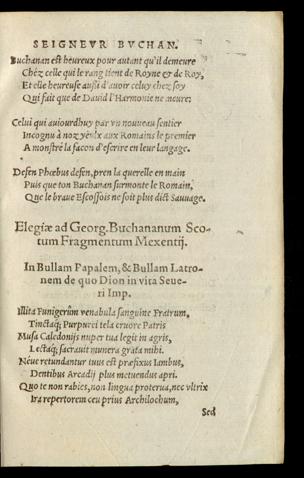 SEIGNEVR BVCHAN.
Buchanan est heureux pour autant qu'il demeure
Chéz celle qui le rang tient de Royne & de Roy,
Et elle heureuse aussi d'auoir celuy chez soy
Qui fait que de Dauid l'Harmonie ne meure:
Celui qui auiourdhuy par vn nouueau sentier
Incognu à noz yeulx aux Romains le premier
A monstré la facon d'escrire en leur langage.
Desen Phœbus desen, pren la querelle en main
Puis que ton Buchanan surmonte le Romain,
Que le braue Escossois ne soit plus dict Sauuage.
Elegiæ ad Georg. Buchananum Sco-
tum Fragmentum Mexentij.
In Bullam Papalem, & Bullam Latro-
nem de quo Dion in vita Seue-
ri Imp.
Illita Funigerûm venabula sanguine Fratrum,
Tinctaq; Purpurei tela cruore Patris
Musa Caledonijs nuper tua legit in agris,
Lectaq; sacrauit munera grata mihi.
Néue retundantur tuus est præfixus Iambus,
Dentibus Arcadij plus metuendus apri.
Quo te non rabies, non lingua proterua, nec vltrix
Ira repertorem ceu prius Archilochum,
Sed